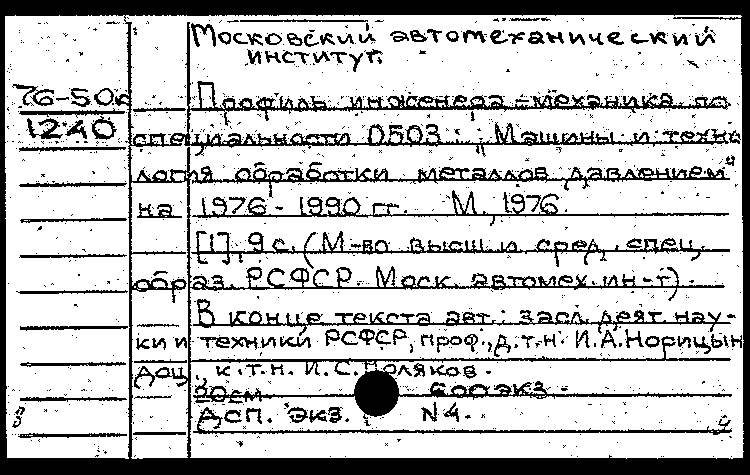 Московский автомеханический
институт.
76-50к
1240
Профиль инженера-механика по
специальности 0503: „Машины и техно
логия обработки металлов давлением"
на 1976-1990 гг. М., 1976.
[1], 9 с. (М-во высш. и сред. спец.
образ. РСФСР. Моск. автомех. ин-т).
В конце текста авт.: засл. деят. нау-
ки и техники РСФСР, проф., д.т.н. И.А.Норицын
доц., к.т.н. И.С.Поляков.
20см 600 экз.
ДСП. экз. N4.